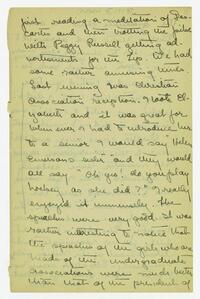 first, reading a meditation of Des-
cartes and then trotting the
with Peggy Russell getting ad-
vertisements for the Tip. We had
some rather amusing times.
Last evening was Christian
Association reception. I took El-
izabeth and it was great for
when ever I had to introduce her
to a senior I would say Helen
Emerson's sister and they would
all say "Oh yes! do you play
hockey as she did?" I really
enjoyed it immensely. The
speeches were very good. It was
rather interesting to notice that
the speeches of the girls who are
heads of the undergraduate
associations were much better
than that of the president of